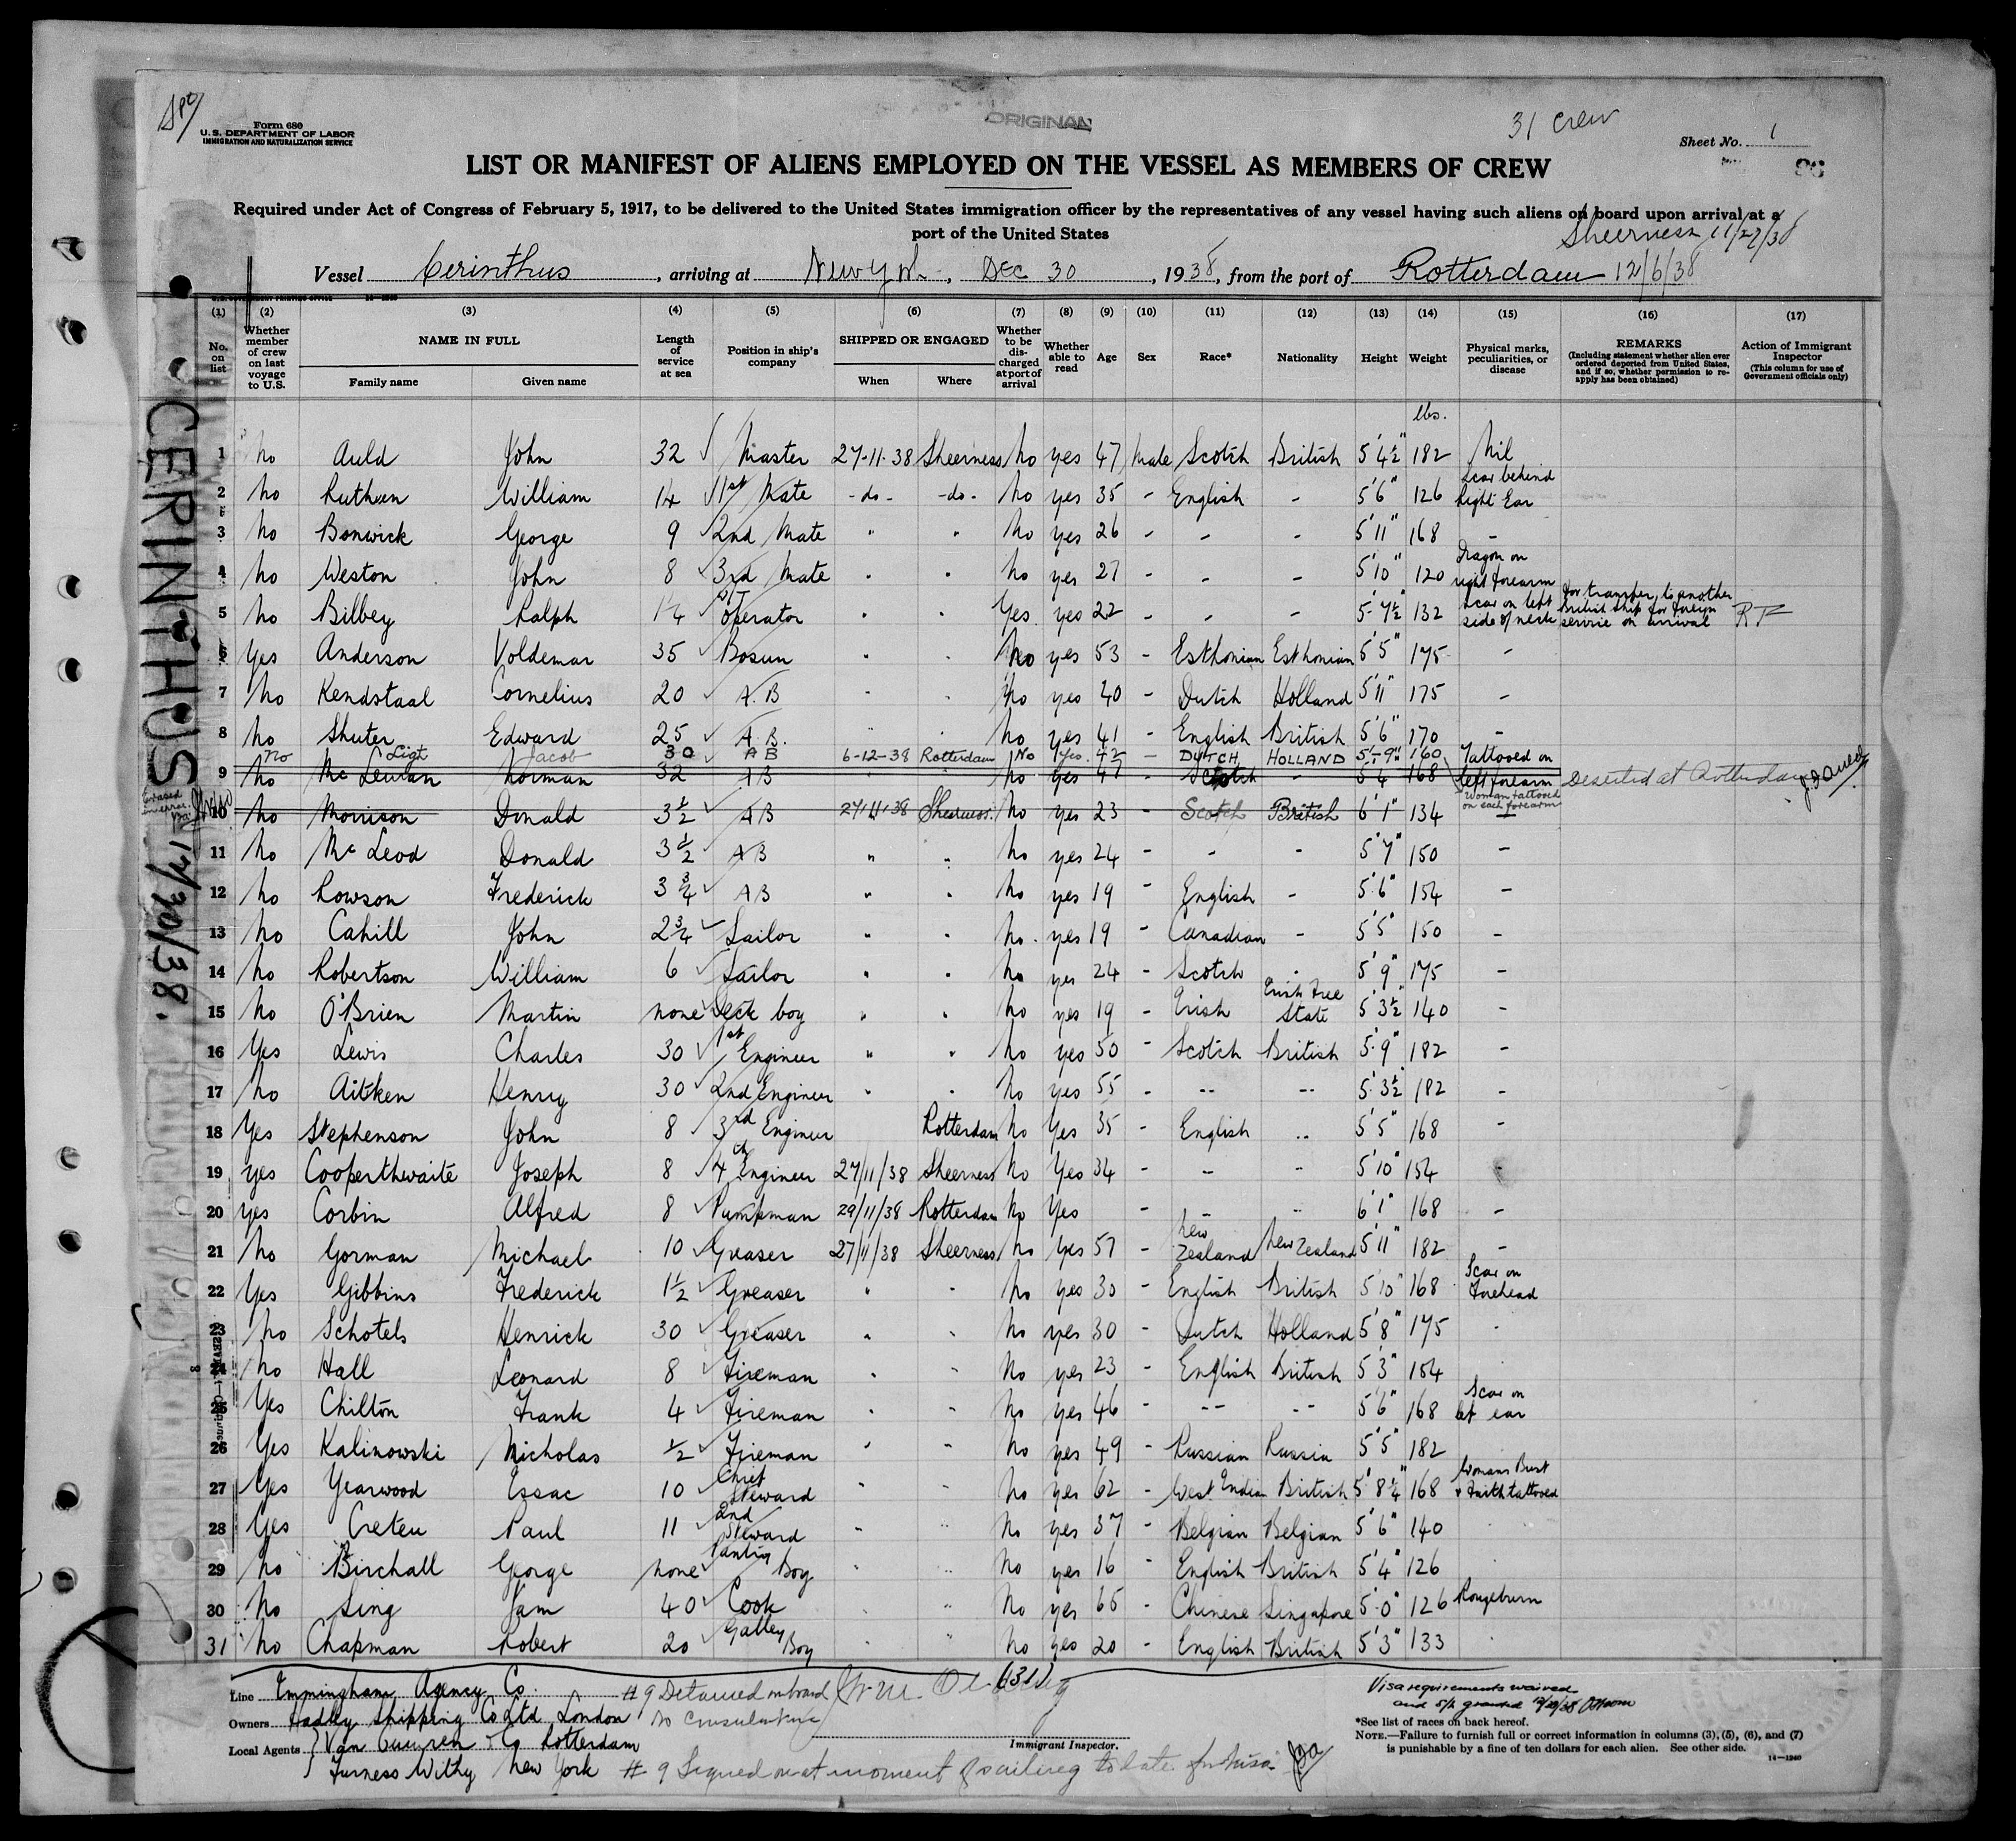 Spt
Form 680
U.S. DEPARTMENT OF LABOR
IMMIGRATION AND NATURALIZATION SERVICE
ORIGINAL
31 Crew
Sheet No. 1
96
LIST OR MANIFEST OF ALIENS EMPLOYED ON THE VESSEL AS MEMBERS OF CREW
Required under Act of Congress of February 5, 1917, to be delivered to the United States immigration officer by the representatives of any vessel having such aliens on board upon arrival at a
port of the United States
Sheerness 11/27/38
Vessel Cerinthus, arriving at New York, DEC 30, 1938, from the port of Rotterdam 12/6/38
(1) (2) (3) (4) (5) (6) (7) (8) (9) (10) (11) (12) (13) (14) (15) (16) (17)
No. on list
Whether member of crew on last voyage to U.S.
NAME IN FULL
Family name
Given name
Length of service at sea
Position in ship's company
SHIPPED OR ENGAGED
When
Where
Whether to be discharged at port of arrival
Whether able to read
Age
Sex
Race*
Nationality
Height
Weight
Physical marks, peculiarities, or disease
REMARKS
(Including statement whether alien ever ordered deported from United States, and if so, whether permission to reapply has been obtained)
Action of Immigrant Inspector
(This column for use of Government officials only)
lbs.
1 No Auld John 32 Master 27-11-38 Sheerness No yes 47 Male Scotch British 5' 4½" 182 Nil
2 No Ruthven William 14 1st Mate -do- -do- No yes 35 - English - 5' 6" 126 Scar behind Right Ear
3 No Bonwick George 9 2nd Mate " " No yes 26 - - - 5' 11" 168 -
4 No Weston John 8 3rd Mate " " No yes 27 - - - 5' 10" 120 Dragon on right forearm
5 No Bilbey Ralph 1¼ Operator " " Yes yes 22 - - - 5' 7½" 132 Scar on left side of neck for transfer to another British ship for foreign service on arrival
6 Yes Anderson Voldemar 35 Bosun " " No yes 53 - Esthonian Esthonian 5' 5" 175 -
7 No Kendstaal Cornelius 20 A.B " " No yes 40 - Dutch Holland 5' 11" 175 -
8 No Shuter Edward 25 A.B. " " No yes 41 - English British 5' 6" 170 -
No Ligt Jacob 30 AB 6-12-38 Rotterdam No Yes 42 - DUTCH HOLLAND 5'-9" 160
9 No McLennan Norman 32 AB " No yes 47 - Scotch - 5' 4" 168 Tattooed on left forearm Deserted at Rotterdam
10 No Morrison Donald 3½ AB 27/11/38 Sheerness No yes 23 - Scotch British 6' 1" 134 -
Woman tattooed on each forearm
11 No McLeod Donald 3½ AB " " No yes 24 - - - 5' 7" 150 -
12 No Rowson Frederick 3¾ AB " " No yes 19 - English - 5' 6" 154 -
13 No Cahill John 2¾ Sailor " " No yes 19 - Canadian - 5' 5" 150 -
14 No Robertson William 6 Sailor " " No yes 24 - Scotch - 5' 9" 175 -
15 No O'Brien Martin none Deck boy " " No yes 19 - Irish Irish Free State 5' 3½" 140 -
16 Yes Lewis Charles 30 1st Engineer " " No yes 50 - Scotch British 5' 9" 182 -
17 No Aitken Henry 30 2nd Engineer " " No yes 55 - -- -- 5' 3½" 182 -
18 Yes Stephenson John 8 3rd Engineer Rotterdam No Yes 35 - English " 5' 5" 168 -
19 yes Cooperthwaite Joseph 8 4th Engineer 27/11/38 Sheerness No Yes 34 - - - 5' 10" 154
20 yes Corbin Alfred 8 Pumpman 29/11/38 Rotterdam No Yes - - " 6' 1" 168 -
21 No Gorman Michael 10 Greaser 27/11/38 Sheerness No yes 57 - New Zealand New Zealand 5' 11" 182 -
22 Yes Gibbins Frederick 1½ Greaser " " No yes 30 - English British 5' 10" 168 Scar on Forehead
23 No Schotels Henrick 30 Greaser " " No yes 30 - Dutch Holland 5' 8" 175 -
24 No Hall Leonard 8 Fireman " " No yes 23 - English British 5' 3" 154
25 Yes Chilton Frank 4 Fireman " " No yes 46 - -- -- 5' 6" 168 Scar on left ear
26 Yes Kalinowski Nicholas ½ Fireman " " No yes 49 - Russian Russia 5' 5" 182
27 Yes Yearwood Essac 10 Chief Steward " " No yes 62 - West Indian British 5' 8¼" 168 Womans Bust & Faith tattooed
28 Yes Creteu Paul 11 2nd Steward " " No yes 37 - Belgian Belgian 5' 6" 140
29 No Birchall George none Pantry Boy " " No yes 16 - English British 5' 4" 126
30 No Sing Jam 40 Cook " " No yes 65 - Chinese Singapore 5' 0" 126
31 No Chapman Robert 20 Galley Boy " " No yes 20 - English British 5' 3" 133
CERINTHUS 12/30/38.
Line Immingham Agency Co.
Owners Hadley Shipping Co Ltd London
Local Agents Van Ommeren & Co Rotterdam
Furness Withy New York
#9 Detained on board
(31)
Immigrant Inspector.
#9 Signed on at moment of sailing to late for visa
Visa requirements waived
*See list of races on back hereof.
NOTE.—Failure to furnish full or correct information in columns (3), (5), (6), and (7)
is punishable by a fine of ten dollars for each alien. See other side.
14—1240